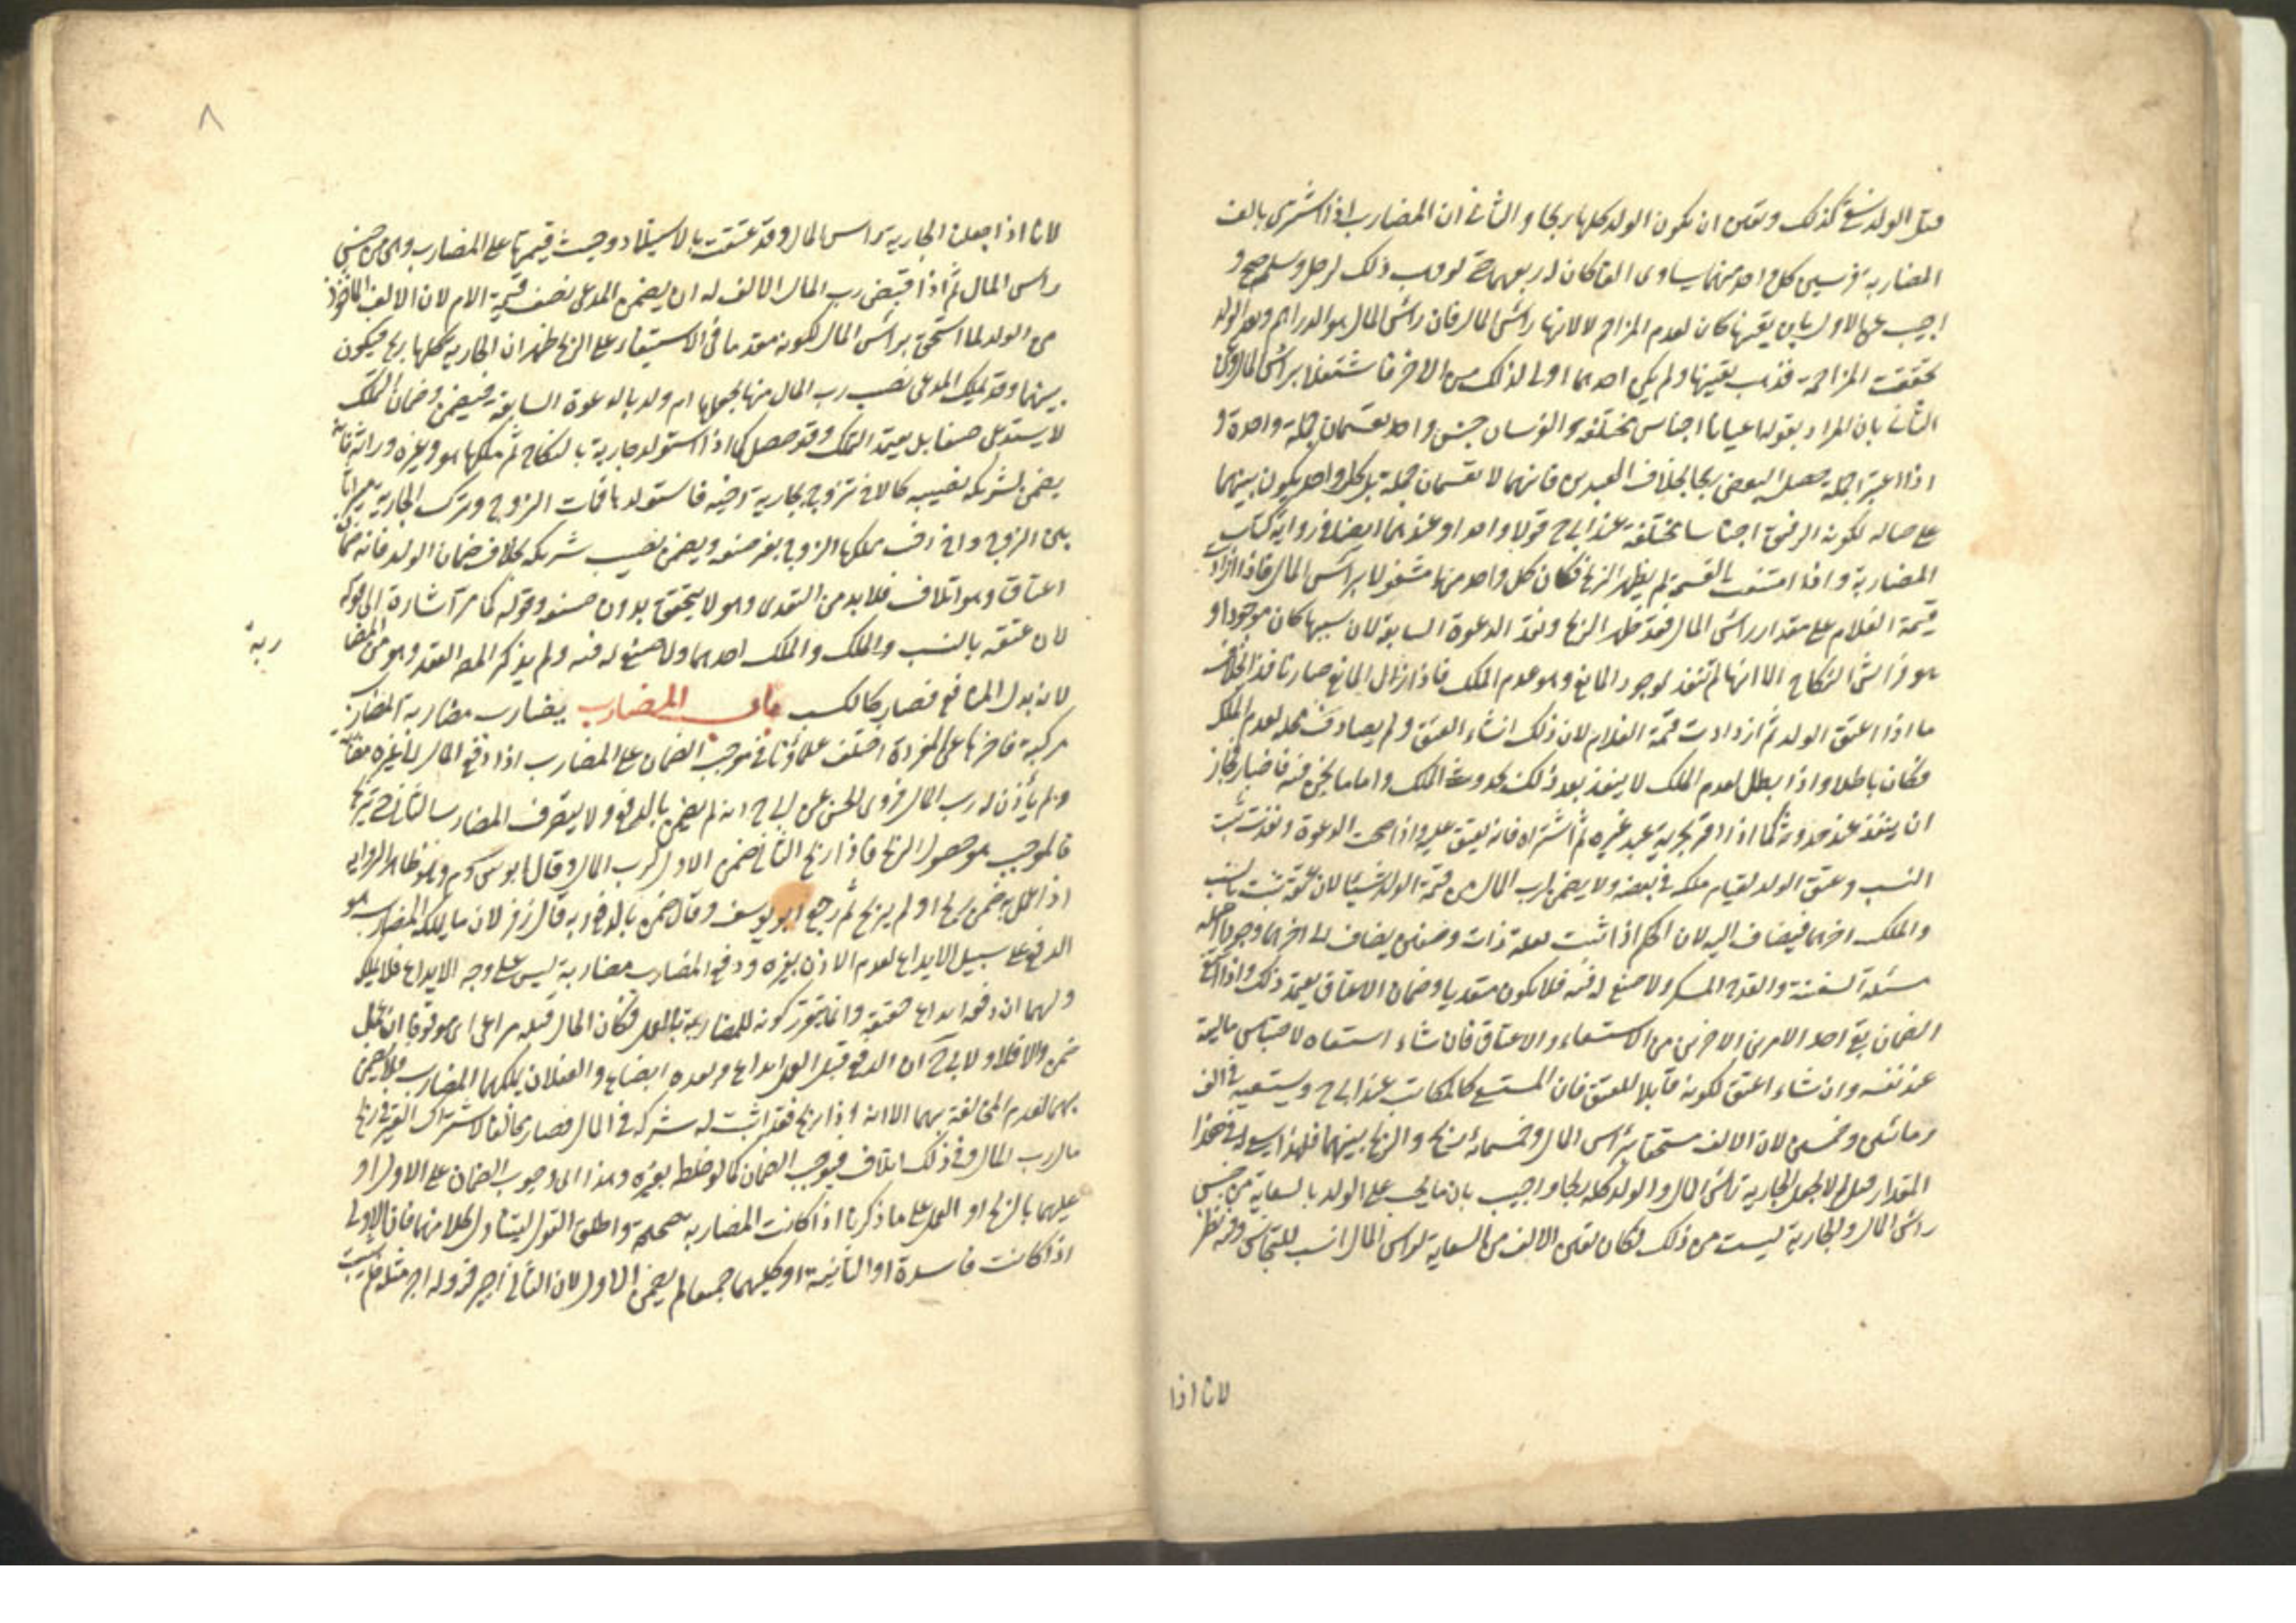 قبل الولد بقي كذلك وتعين ان يكون الولد كلها ربحا والثاني ان المضارب اذا اشترى بالف
المضاربة فرسين كل واحد منهما يساوي الفا كان له ربعهما حتى لو وهب ذلك لرجل وسلم صح و
اجيب عن الاول بان تعينها كان لعدم المزاحم لا لانها راس المال فان راس المال هو الدراهم وبعد الولد
تحققت المزاحمة فذهب تعينها ولم يكن احدهما اولى لذلك من الاخر فاشتغلا براس المال وعن
الثاني بان المراد بقوله اعيانا اجناس مختلفة والفرسان جنس واحد يقسمان جملة واحدة و
اذا اعتبرا جملة حصل البعض ربحا بخلاف العبدين فانهما لا يقسمان جملة بل كل واحد يكون بينهما
على حياله لكونه الرقيق اجناسا مختلفة عند ابي ح قولا واحدا وعندهما ايضا في رواية كتاب
المضاربة واذا امتنعت القسمة لم يظهر الربح فكان كل واحد منهما مشغولا براس المال فاذا ازداد
قيمة الغلام على مقدار راس المال فقد ظهر الربح ونفذ الدعوة السابقة لان سببها كان موجودا و
هو فراش النكاح الا انها لم تنفذ لوجود المانع وهو عدم الملك فاذا زال المانع صار نافذا بخلاف
ما اذا اعتق الولد ثم ازدادت قيمة الغلام لان ذلك انشاء العتق ولم يصادف محله لعدم الملك
فكان باطلا واذا بطل لعدم الملك لا ينفذ بعد ذلك بحدوث الملك واما ما نحن فيه فاخبار فجاز
ان ينفذ عند حدوثه كما اذا اقر بحرية عبد غيره ثم اشتراه فانه يعتق عليه واذا صحت الدعوة ونفذت ثبت
النسب وعتق الولد لقيام ملكه في بعضه ولا يضمن لرب المال من قيمة الولد شيئا لان عتقه ثبت بالنسب
والملك اخرهما فيضاف اليه لان الحكم اذا ثبت بعلة ذات وصفين يضاف الى اخرهما وجودا اصله
مسئلة السفينة والقدح المسكر ولا صنع له فيه فلا يكون متعديا وضمان الاعتاق يعتمد ذلك واذا امتنع
الضمان بقي احد الامرين الاخرين من الاستسعاء والاعتاق فان شاء استسعاه لاحتباس ماليته
عند نفسه وان شاء اعتق لكونه قابلا للعتق فان المستسعى كالمكاتب عند ابي ح ويستسعيه في الف
ومائتين وخمسين لان الالف مستحق براس المال وخمسمائة ربح والربح بينهما فلهذا يسعى له في هذا
المقدار قيل لم لا يجعل الجارية راس المال والولد كله ربحا واجيب بان ما يجب على الولد بالسعاية من جنس
راس المال والجارية ليست من ذلك فكان تعين الالف من السعاية لراس المال انسب للتجانس وفيه نظر
لانا اذا
٨
لانا اذا جعلنا الجارية راس المال وقد عتقت بالاستيلاد وجبت قيمتها على المضارب وهي من جنس
راس المال ثم اذا قبض رب المال الالف له ان يضمن المدعي نصف قيمة الام لان الالف الماخوذ
من الولد لما استحق براس المال لكونه مقدما في الاستيفاء على الربح ظهر ان الجارية كلها ربح فيكون
بينهما وقد تملك المدعي نصيب رب المال منها بجعلها ام ولد بالدعوة السابقة فيضمن وضمان التملك
لا يستدعي صنعا بل يعتمد التملك وقد حصل كما اذا استولد جارية بالنكاح ثم ملكها هو وغيره وراثة فانه
يضمن لشريكه نصيبه كالاخ تزوج بجارية اخيه فاستولدها فمات الزوج وترك الجارية ميراثا
بين الزوج واخ اخر ملكها الزوج بغير صنعه ويضمن نصيب شريكه بخلاف ضمان الولد فانه ضمان
اعتاق وهو اتلاف فلا بد من التعدي وهو لا يتحقق بدون صنعه وقوله كما مر اشارة الى قوله
لان عتقه بالنسب والملك والملك اخرهما ولا صنع له فيه ولم يذكر المص العقد وهو من المضا
ربة
لانه بدل المنافع فصار كالكسب باب المضارب يضارب مضاربة المضارب
مركبة فاخرها عن المفردة اختلف علماؤنا في موجب الضمان على المضارب اذا دفع المال الى غيره مضاربة
ولم يأذن له رب المال فروى الحسن عن ابي ح انه لم يضمن بالدفع ولا يتصرف المضارب الثاني حتى يربح
فالموجب هو حصول الربح فاذا ربح الثاني ضمن الاول لرب المال وقال ابو س وم وهو ظاهر الرواية
اذا عمل به ضمن ربح او لم يربح ثم رجع ابو يوسف وقال ضمن بالدفع وبه قال زفر لان ما يملكه المضارب هو
الدفع على سبيل الايداع لعدم الاذن بغيره ودفع المضارب مضاربة ليس على وجه الايداع فلا يملكه
ولهما ان دفعه ايداع حقيقة وانما يتقرر كونه للمضاربة بالعمل فكان الحال قبله مراعى اي موقوفا ان عمل
ضمن والا فلا ولابي ح ان الدفع قبل العمل ايداع وبعده ابضاع والفعلان يملكهما المضارب فلا يضمن
بهما لعدم المخالفة بهما الا انه اذا ربح فقد اثبت له شركة في المال فصار مخالفا لاشتراك الغير في ربح
مال رب المال وفي ذلك اتلاف فيوجب الضمان كما لو خلط بغيره وهذا اي وجوب الضمان على الاول او
عليهما بالربح او العمل على ما ذكرنا اذا كانت المضاربة صحيحة واطلق القول ليتناول كلا منهما فان الاولى
اذا كانت فاسدة او الثانية او كليهما جميعا لم يضمن الاول لان الثاني اجير فيه وله اجر مثله فلم يثبت